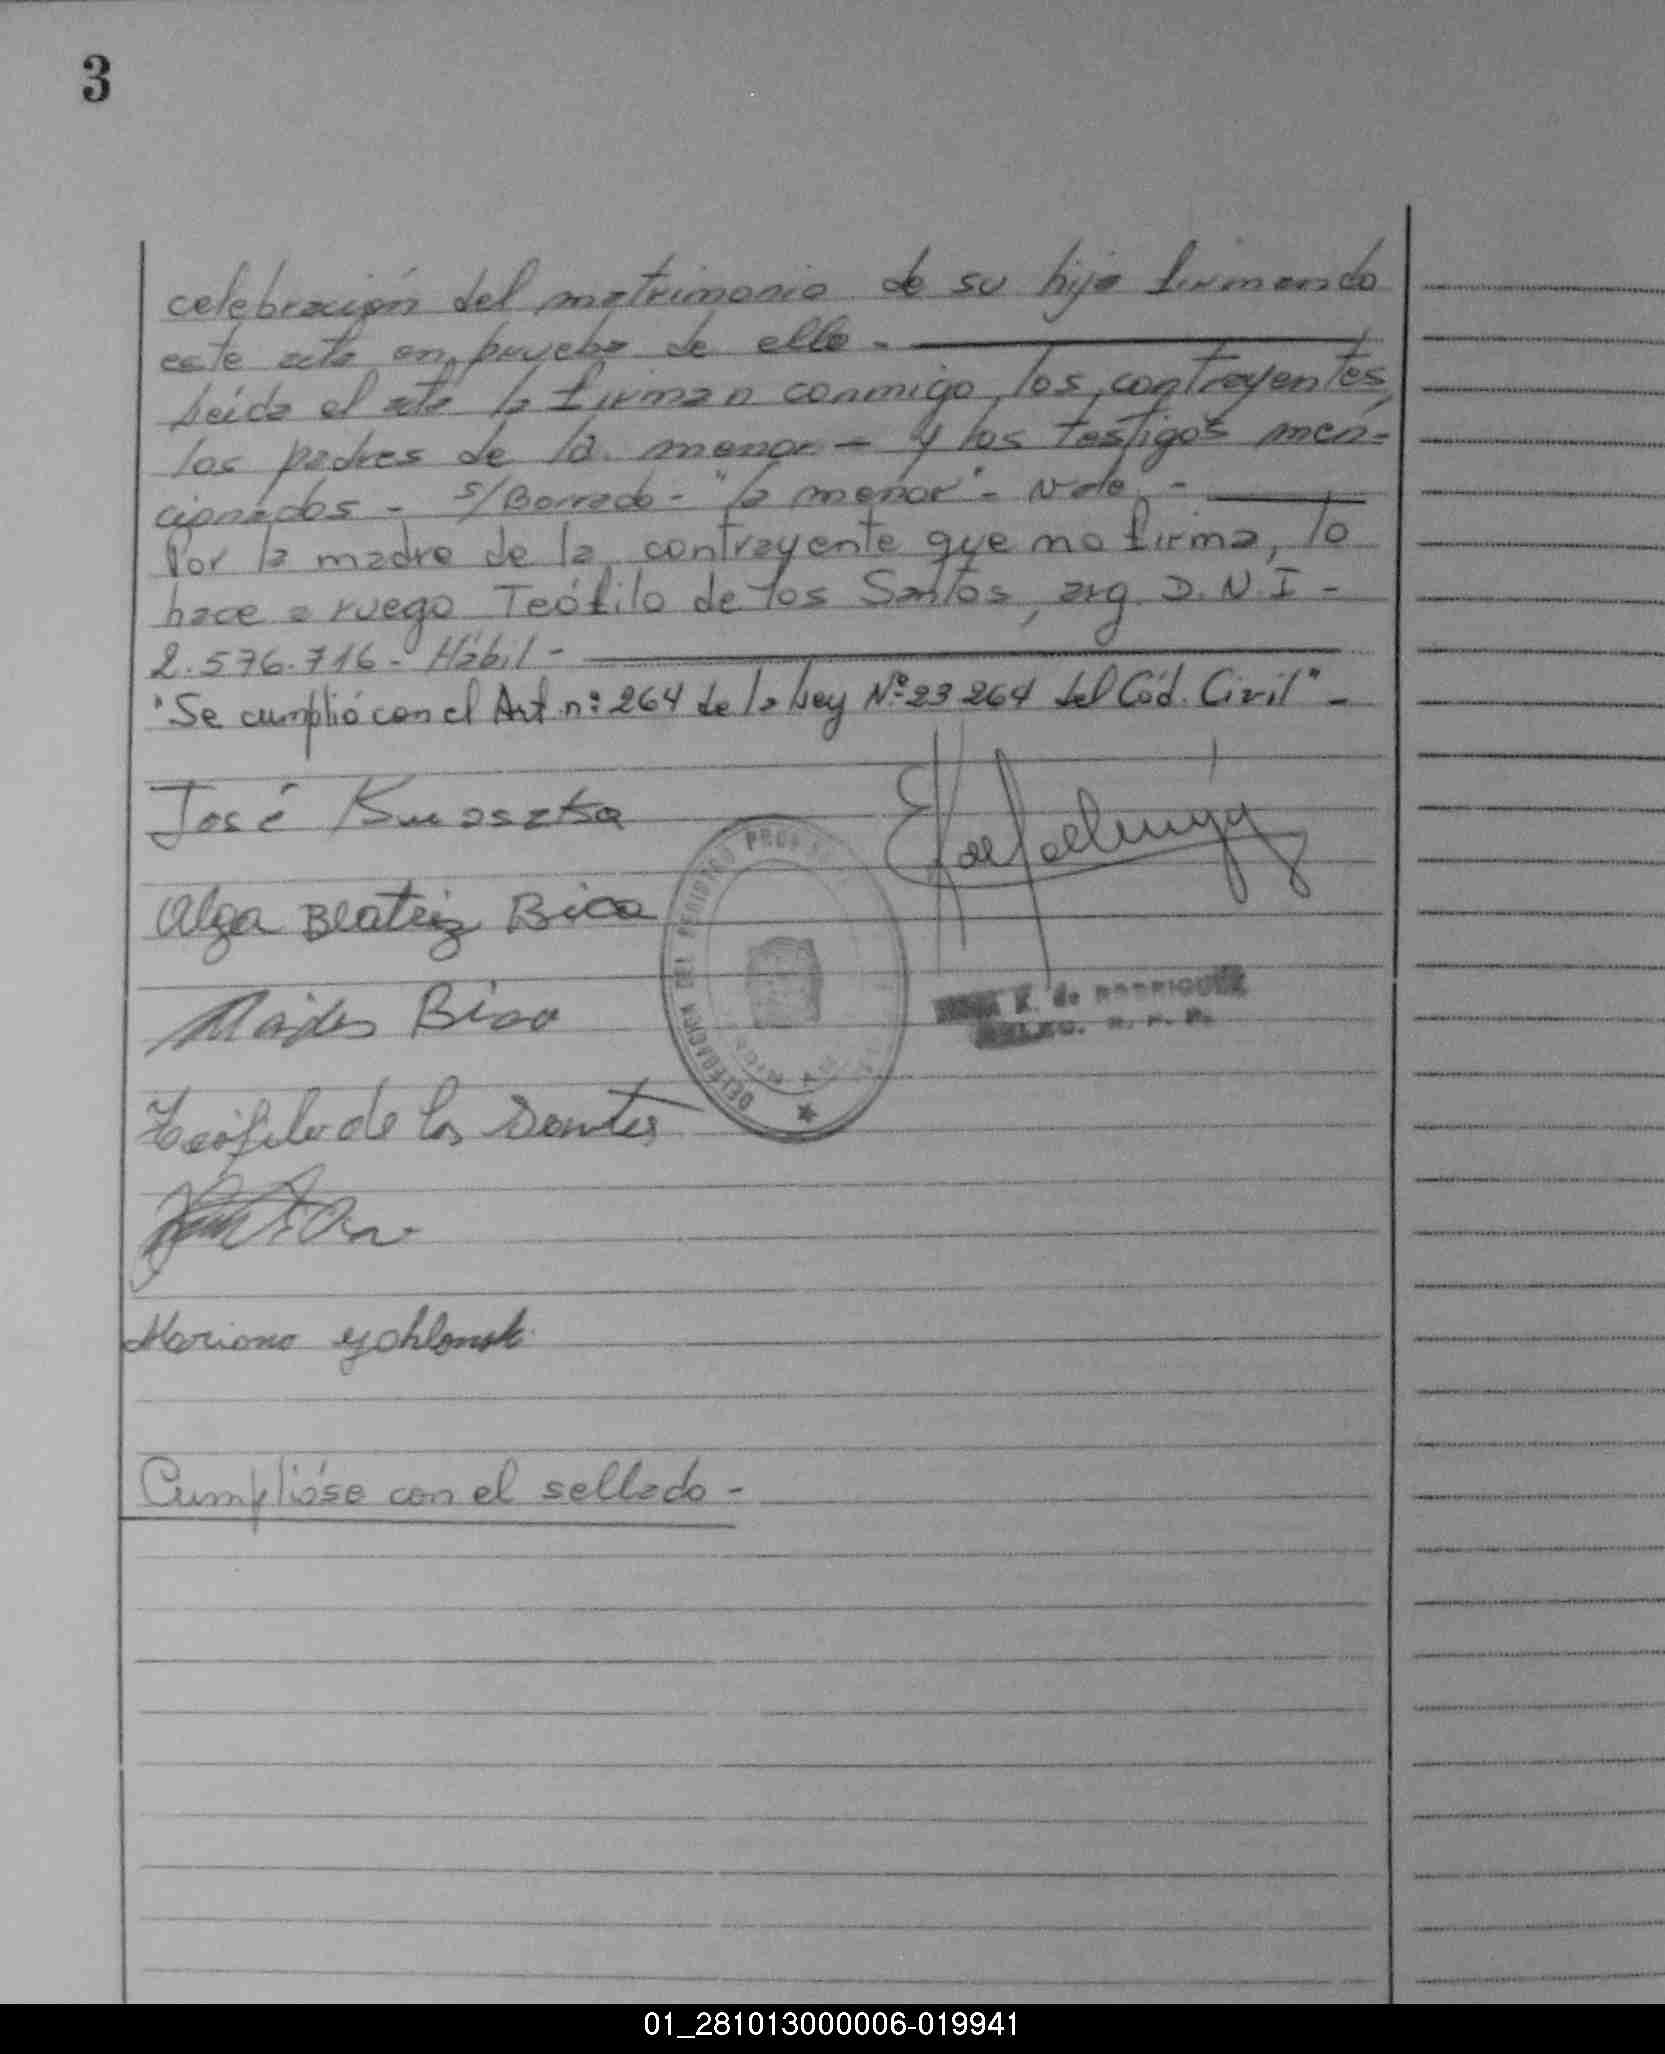 3
celebración del matrimonio de su hija firmando
este acto en prueba de ello. -
Leída el acta la firman conmigo, los contrayentes,
los padres de la menor - y los testigos men-
cionados - s/Borrado - "la menor" - Vale, -
Por la madre de la contrayente que no firma, lo
hace a ruego Teófilo de los Santos, arg. D.N.I -
2.576.716 - Hábil -
"Se cumplió con el Art. nº 264 de la Ley Nº 23264 del Cód. Civil" -
José
Olga Beatriz Bica
Bica
DELEGACION DEL REGISTRO PROV
de RODRIGUEZ
Teófilo de los Santos
Mariano
Cumplióse con el sellado -
01_281013000006-019941